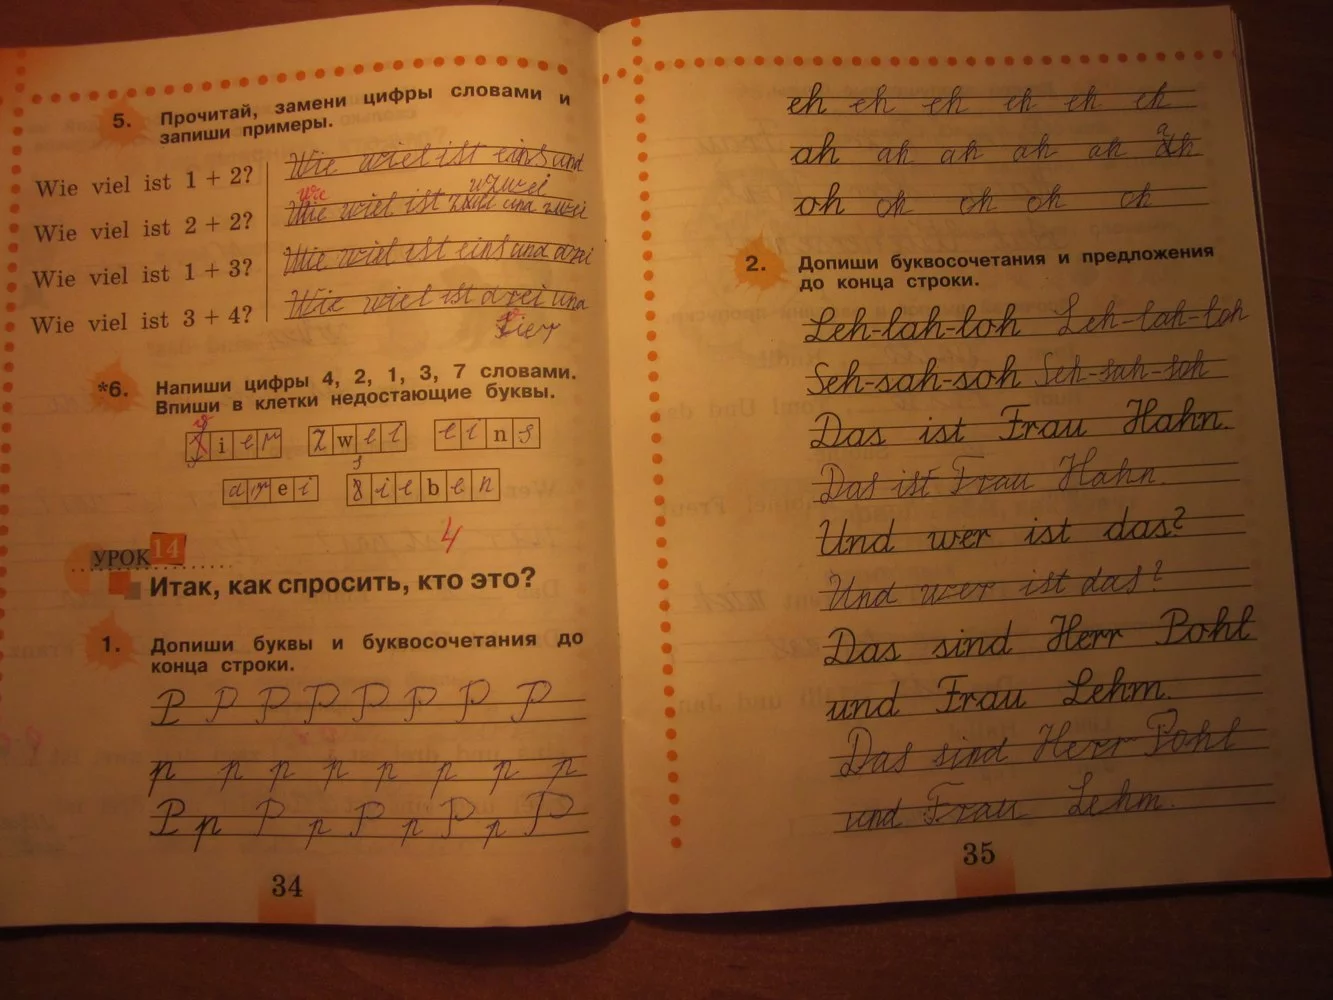 5. Прочитай, замени цифры словами и
запиши примеры.
Wie viel ist 1 + 2?
Wie wiel ist eins und
zwei
Wie viel ist 2 + 2?
wie
Wie wiel ist zwei und zwei
Wie viel ist 1 + 3?
Wie wiel ist eins und drei
Wie viel ist 3 + 4?
Wie wiel ist drei und
vier
*6. Напиши цифры 4, 2, 1, 3, 7 словами.
Впиши в клетки недостающие буквы.
v i e r z w e i e i n s
d r e i s i e b e n
4
УРОК 14
Итак, как спросить, кто это?
1. Допиши буквы и буквосочетания до
конца строки.
P P P P P P P P
p p p p p p p p
P p P p P p P p P
34
eh eh eh eh eh eh
ah ah ah ah ah ah
oh oh oh oh oh
2. Допиши буквосочетания и предложения
до конца строки.
Leh-lah-loh Leh-lah-loh
Seh-sah-soh Seh-sah-soh
Das ist Frau Hahn.
Das ist Frau Hahn.
Und wer ist das?
Und wer ist das?
Das sind Herr Pohl
und Frau Lehm.
Das sind Herr Pohl
und Frau Lehm.
35